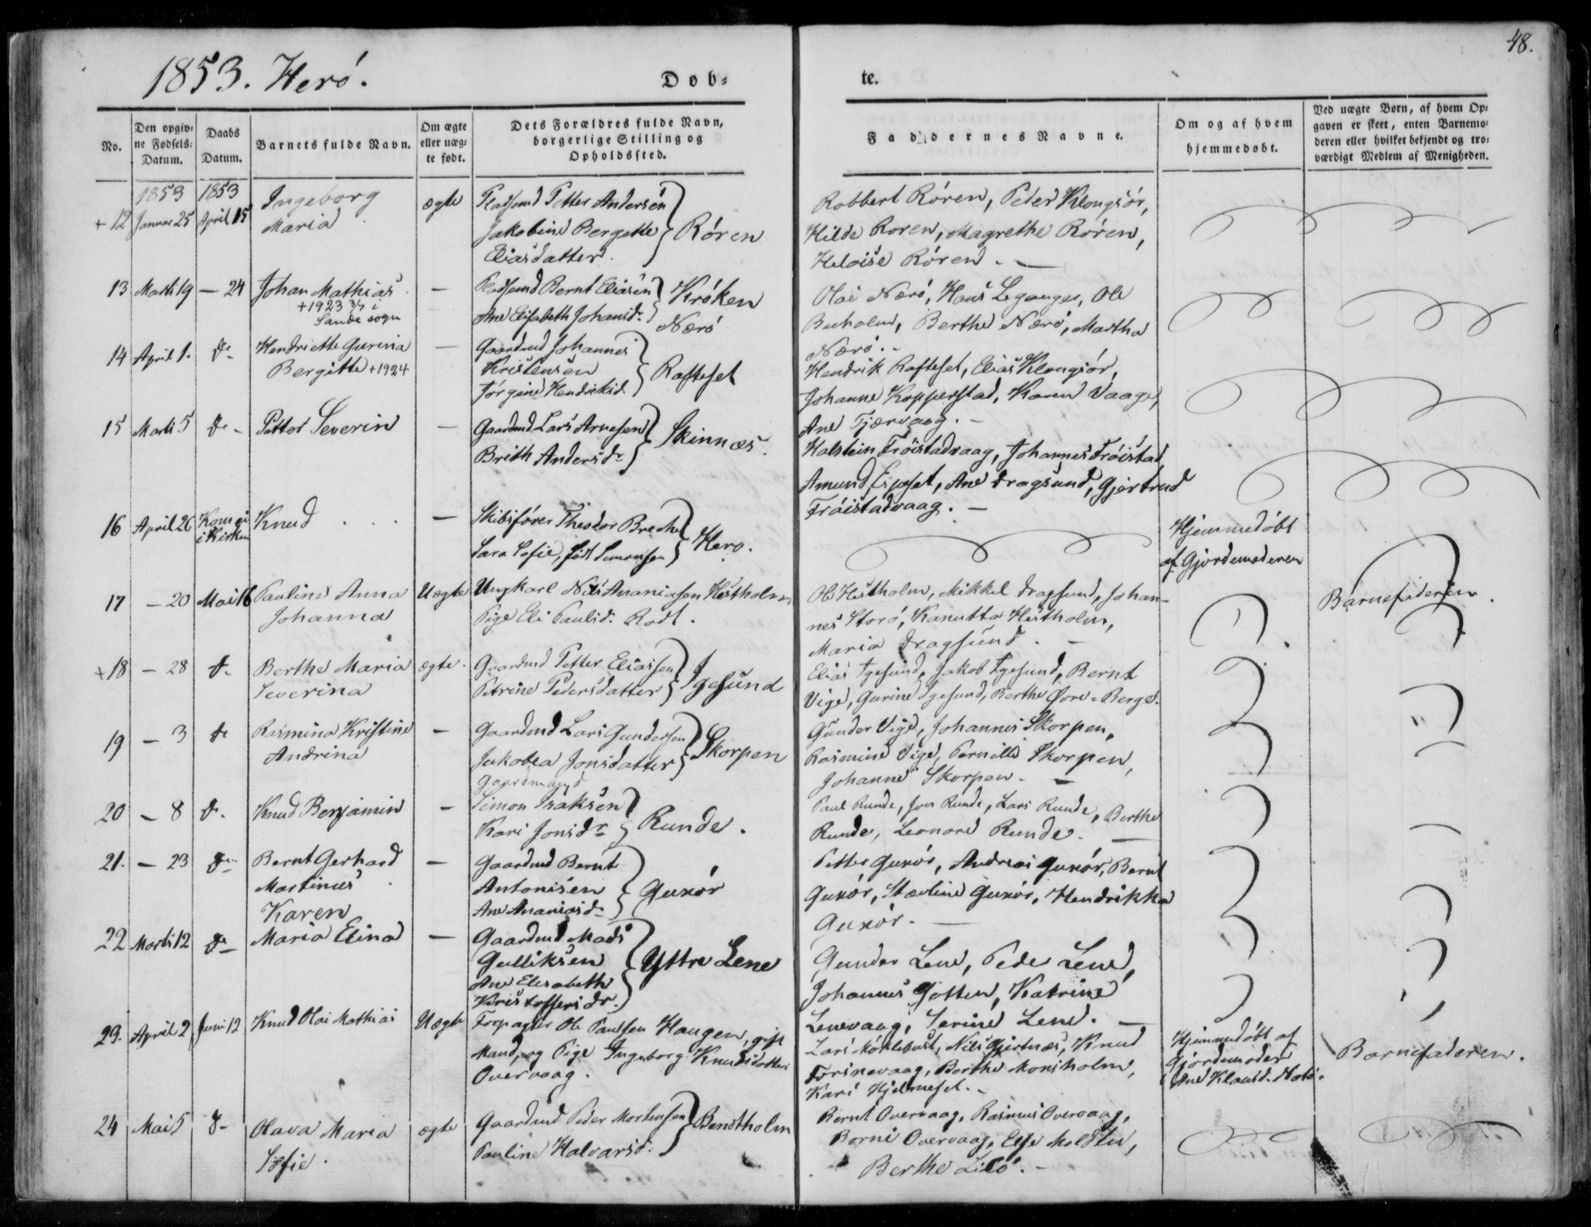 48.
1853. Herö.
Dob-
te.
No.
Den opgiv-
ne Fødsels-
Datum.
Daabs
Datum.
Barnets fulde Navn.
Om ægte
eller uæg-
te født.
Dets Forældres fulde Navn,
borgerlige Stilling og
Opholdssted.
Faddernes Navne.
Om og af hvem
hjemmedøbt.
Ved uægte Børn, af hvem Op-
gaven er skeet, enten Barnemo-
deren eller hvilket bekjendt og tro-
værdigt Medlem af Menigheden.
1853 1853
+ 12 Januar 25 April 15
Ingeborg
Maria
ægte
Petter Andersen
Jakobine Bergette
Eliasdatter
Røren
Robbert Røren, Peter Klongsør,
Hilde Roren, Magrethe Røren,
Heloise Røren. —
13 Marts 19 — 24
Johan Mathias
+1923 3/7 i
Sande sogn
—
Bernt Eliasen
Ane Elisabeth Johansd.
Krøken
Nærø
Olai Nærö, Hans Leganger, Ole
Buholm, Berthe Nærö, Martha
Nærö. -
14 April 1. do
Hendriette Gurina
Bergitte +1924
—
Gaardmd Johannes
Kristensen
Jørgine Hendriksd.
Rafteset
Hendrik Rafteset, Elias Klongsör,
Johanne Kopperstad, Karen Vaage,
Ane Tjærvaag. -
15 Marts 5 do -
Petter Severin
—
Gaardmd Lars Arnesen
Brith Andersdr
Skinnæs.
Holstein Fröistadvaag, Johannes Fröistad
Amund Eggset, Ane Dragsund, Gjertrud
Fröistadvaag. -
16 April 26 Kom ei
i Kirken
Knud
—
Skibsfører Theodor Brech
Sara Sofie, født Simonsen
Herö.
Hjemmedøbt
af Gjordemoderen
17 — 20 Mai 16
Pauline Anna
Johanna
Uægte
Ungkarl Nils Ananiasen Hestholm
Pige Eli Paulsd. Rødt.
Ole Hestholm, Mikkel Dragsund, Johan-
nes Storö, Kanutta Hestholm,
Maria Dragsund. —
Barnefaderen.
+18 — 28 do
Berthe Maria
Severina
ægte.
Gaardmd Petter Eliassen
Petrine Pedersdatter
Igesund
Elias Igesund, Jakob Igesund, Bernt
Vige, Gurine Igesund, Berthe Øvre-Berge.
19 — 3 do
Rasmina Kristine
Andrina
—
Gaardmd Lars Gundersen
Jakobea Jonsdatter
Skorpen
Gunder Vige, Johannes Skorpen,
Rasmine Vige, Pernille Skorpen,
Johanne Skorpen. —
20 — 8 do.
Knud Benjamin
—
Gaardmand
Simon Isaksen
Kari Jonsdr
Runde.
Paul Runde, Jon Runde, Lars Runde, Berthe
Runde, Leonard Runde. —
21. — 23 do
Bernt Gerhard
Martinus
—
Gaardmd Bernt
Antonisen
Ane Ananiasdr
Gurør
Petter Gurør, Andreas Gurør, Bernt
Gurør, Stærline Gurør, Hendrikka
Gurør. —
22 Marts 12 do
Karen
Maria Elina
—
Gaardmd Mads
Gulliksen
Ane Elisabeth
Kristoffersdr.
Yttre Lene
Gunder Lene, Peder Lene,
Johannes Jotten, Katrine
Lenevaag, Serine Lene. —
23. April 2 Juni 12
Knud Olai Mathias
Uægte
Forpagter Ole Paulsen Haugen, gift
Mand, og Pige Ingeborg Knudsdatter
Overvaag.
Lars Möklebust, Nils Gjertnæs, Knud
Torinevaag, Berthe Monsholm,
Kari Hjelmeset. -
Hjemmedøbt af
Gjordemoder
Ane Klausd.
Barnefaderen.
24 Mai 5 do
Olava Maria
Sofie.
ægte
Gaardmd Peder Mortensen
Pauline Halvarsd.
Bendtholm
Bernt Overvaag, Rasmus Overvaag,
Berni Overvaag, Else Molster,
Berthe Lisö. -